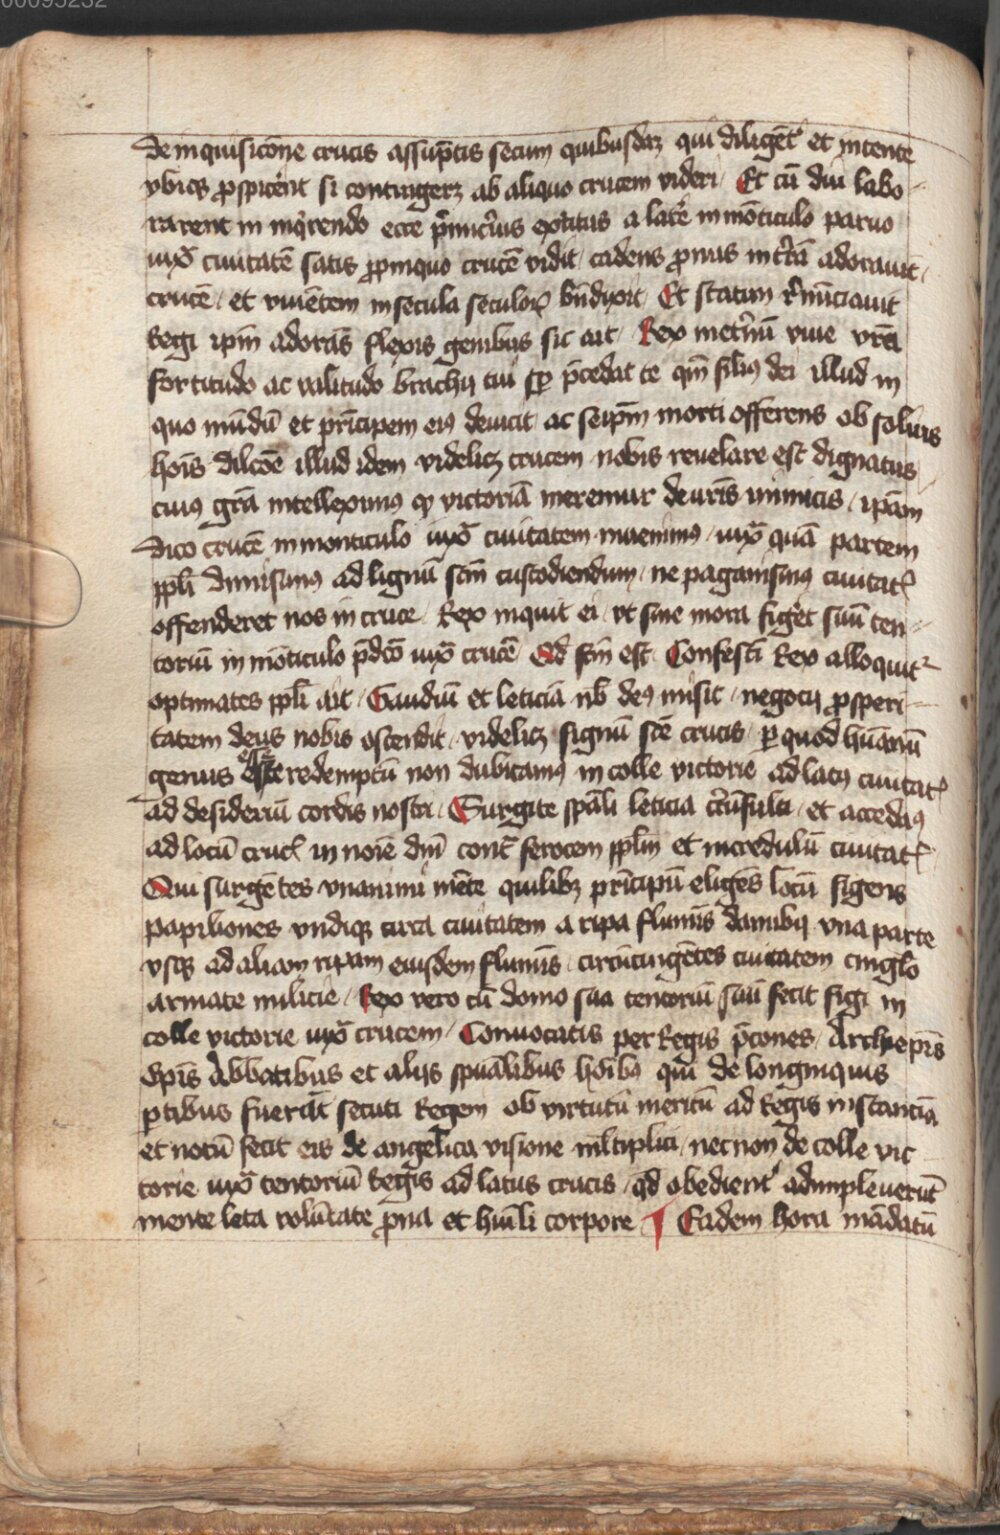 00095232
de inquisicōne crucis assūptis secum quibusdaꝫ qui diligēt᷑ et intente
vbiqꝫ ꝓspicēnt si contingereꝫ ab aliquo crucem videri Et cū diu labo-
rarent in inq̄rendo ecce p̄mic̓ius a lat̓e in mōticulo paruo
iuxᵃ ciuitatē satis ꝓpinquo crucē vidit cadens ꝓnus in t̓rā adorauit
crucē et viuētem in secula seculoꝝ bn̄dixit Et statim r̓nūciauit
Regi ip̄m adorās flexis genibus sic ait Rex in et̓nū viue vr̄a
fortitudo ac valitudo brachij tui sꝑ p̄cedat te qm̄ filiꝰ dei illud in
quo mūdū et prīcipem eiꝰ deuicit ac seip̄m morti offerens ob soliꝰ
hoīs dilcōē illud idem videlicꝫ crucem nobis reuelare est dignatus
cuiꝰ gr̄a intelleximꝰ ꝙ victoriā meremur de vr̄is inimicis ip̄am
dico crucē in monticulo iuxᵃ ciuitatem inuenimꝰ iuxᵃ quā partem
ppl̄i dimisimꝰ ad lignū scm̄ custodiendum ne paganismꝰ ciuitatꝭ
offenderet nos in cruce Rex inquit ei vt sine mora fig̓et suū ten-
toriū in mōticulo p̄dc̄o iuxᵃ crucē Qd̓ fcm̄ est Confestī Rex alloquit᷑
optimates ppl̄i ait Gaudiū et leticiā nb̄ deꝰ misit negocij ꝓsperi-
tatem deus nobis ostendit videlicꝫ signū sc̄e crucis ꝑ quod hūanū
genus esse redemptū non dubitamꝰ in colle victorie ad latꝰ ciuitatꝭ
ad desideriū cordis nostri Surgite spāli leticia et accedamꝰ
ad locū crucꝭ in noīe dn̄i contᵃ ferocem ppl̄m et incredulū ciuitatꝭ
Qui surgētes vnanimi mēte quilibꝫ prīcipū eligēs locū figens
papiliones vndiqꝫ circa ciuitatem a ripa flumīs danubij vna parte
vsqꝫ ad aliam ripam eiusdem flumīs circūcingētes ciuitatem cinglo
armate milicie Rex vero cū domo sua tentoriū suū fecit figi in
colle victorie iuxᵃ crucem Conuocatis per Regis p̄cones Archiepīs
Epīs Abbatibus et alijs spūalibus hoībꝰ qui de longinquis
ꝑtibus fuerāt secuti Regem ob virtutū meritū ad Regis instanciā
et notū fecit eis de angelica visione ml̄tiplici necnon de colle vic
torie iuxᵃ tentoriū Regis ad latus crucis qd̓ obedient᷑ adimpleuerūt
mente leta volūtate ꝓna et hūili corpore ¶ Eadem hora mādatū